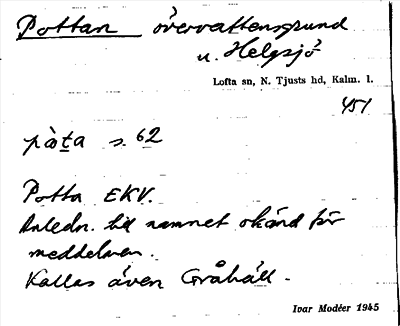 Pottan övervattensgrund
u. Helgsjö
Lofta sn, N. Tjusts hd, Kalm. l.
451
pàta s. 62
Potta EKV.
Anledn. till namnet okänd för
meddelaren.
Kallas även Gråhäll.
Ivar Modéer 1945